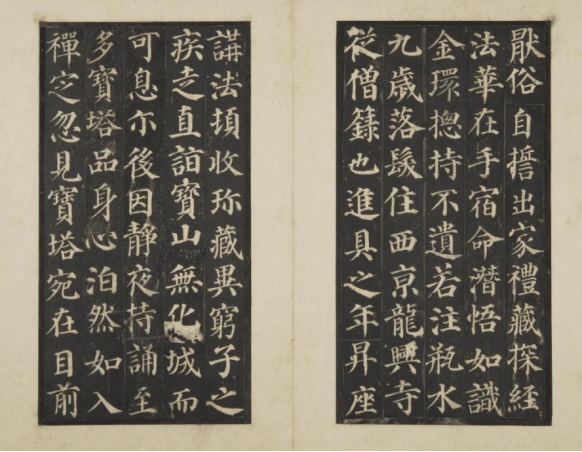 猒俗自誓出家禮藏探經
法華在手宿命潛悟如識
金環揔持不遺若注瓶水
九歲落髮住西京龍興寺
從僧籙也進具之年昇座
講法頓收珎藏異窮子之
疾走直詣寶山無化城而
可息尒後因靜夜持誦至
多寶塔品身心泊然如入
禪定忽見寶塔宛在目前